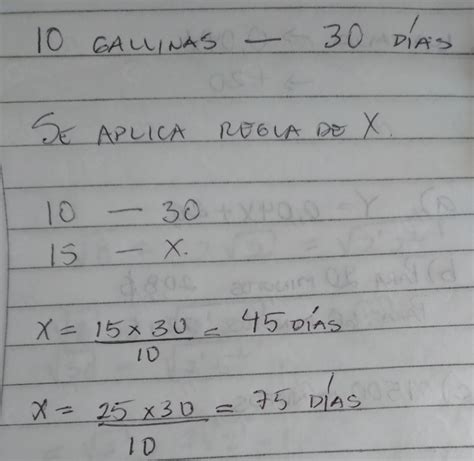 10 GALLINAS — 30 DÍAS
SE APLICA REGLA DE X.
10 — 30
15 — X.
X = 15 x 30 / 10 = 45 DÍAS
X = 25 x 30 / 10 = 75 DÍAS